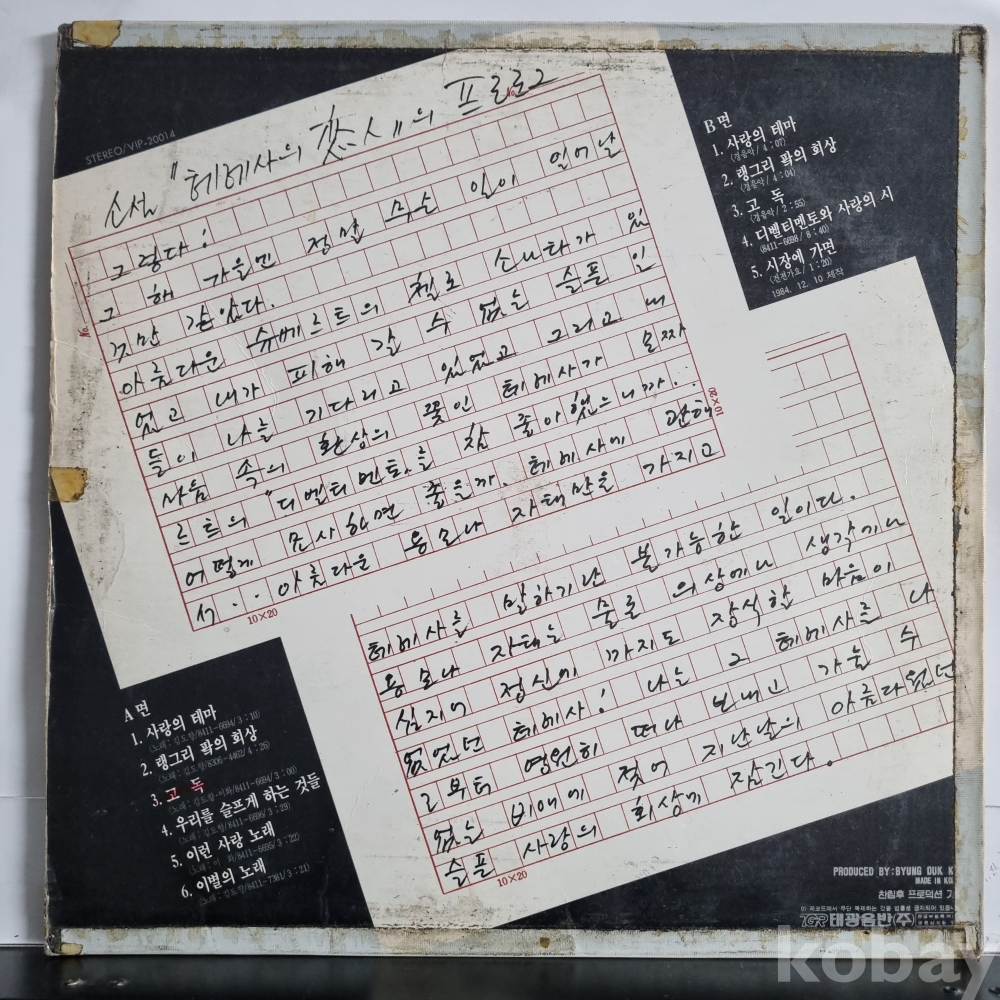 STEREO/VIP-20014
소설 "헤메사의 恋人"의 프롤로그
그렇다!
그 해 가을엔 정말 무슨 일이 일어날
것만 같았다.
아름다운 슈베르트의 첼로 소나타가 있
었고 내가 피해 갈 수 없는 슬픈 인
들이 나를 기다리고 있었고 그리고 내
사등 속의 환상의 꽃인 헤메사가 모짜
르트의 "디벤티멘토"를 참 좋아했으니까..
어떻게 묘사하면 좋을까. 헤메사에 관해
서.. 아름다운 용모나 자태만을 가지고
10×20
No.
10×20
헤메사를 말하기란 불가능한 일이다.
용모나 자태는 술로 의상에나 생각에나
실지어 정신에 까지도 장식한 마음이
없었던 헤메사! 나는 그 헤메사를 나
로부터 영원히 떠나 보내고 가눌 수
없는 비애에 젖어 지난날의 아름다웠던
슬픈 사랑의 회상에 잠긴다.
10×20
B면
1. 사랑의 테마
(경음악/4:07)
2. 랭그리 팍의 회상
(경음악/4:04)
3. 고 독
(경음악/2:55)
4. 디벨티멘토와 사랑의 시
(8411-6698/8:40)
5. 시장에 가면
(건전가요/1:20)
1984. 12. 10 제작
A면
1. 사랑의 테마
(노래:김도향/8411-6694/3:10)
2. 랭그리 팍의 회상
(노래:김도향/8306-4462/4:26)
3. 고 독
(노래:김도향·이화/8411-6694/3:00)
4. 우리를 슬프게 하는 것들
(노래:김도향/8411-6696/3:29)
5. 이런 사랑 노래
(노래:이 화/8411-6695/3:22)
6. 이별의 노래
(노래:김도향/8411-7381/3:21)
PRODUCED BY:BYUNG OUK K
MADE IN KO
찬림후 프로덕션 기
이 레코드에서 무단 복제하는 것을 법률로 금지되어 있읍니
TGR 태광음반(주)
kobay